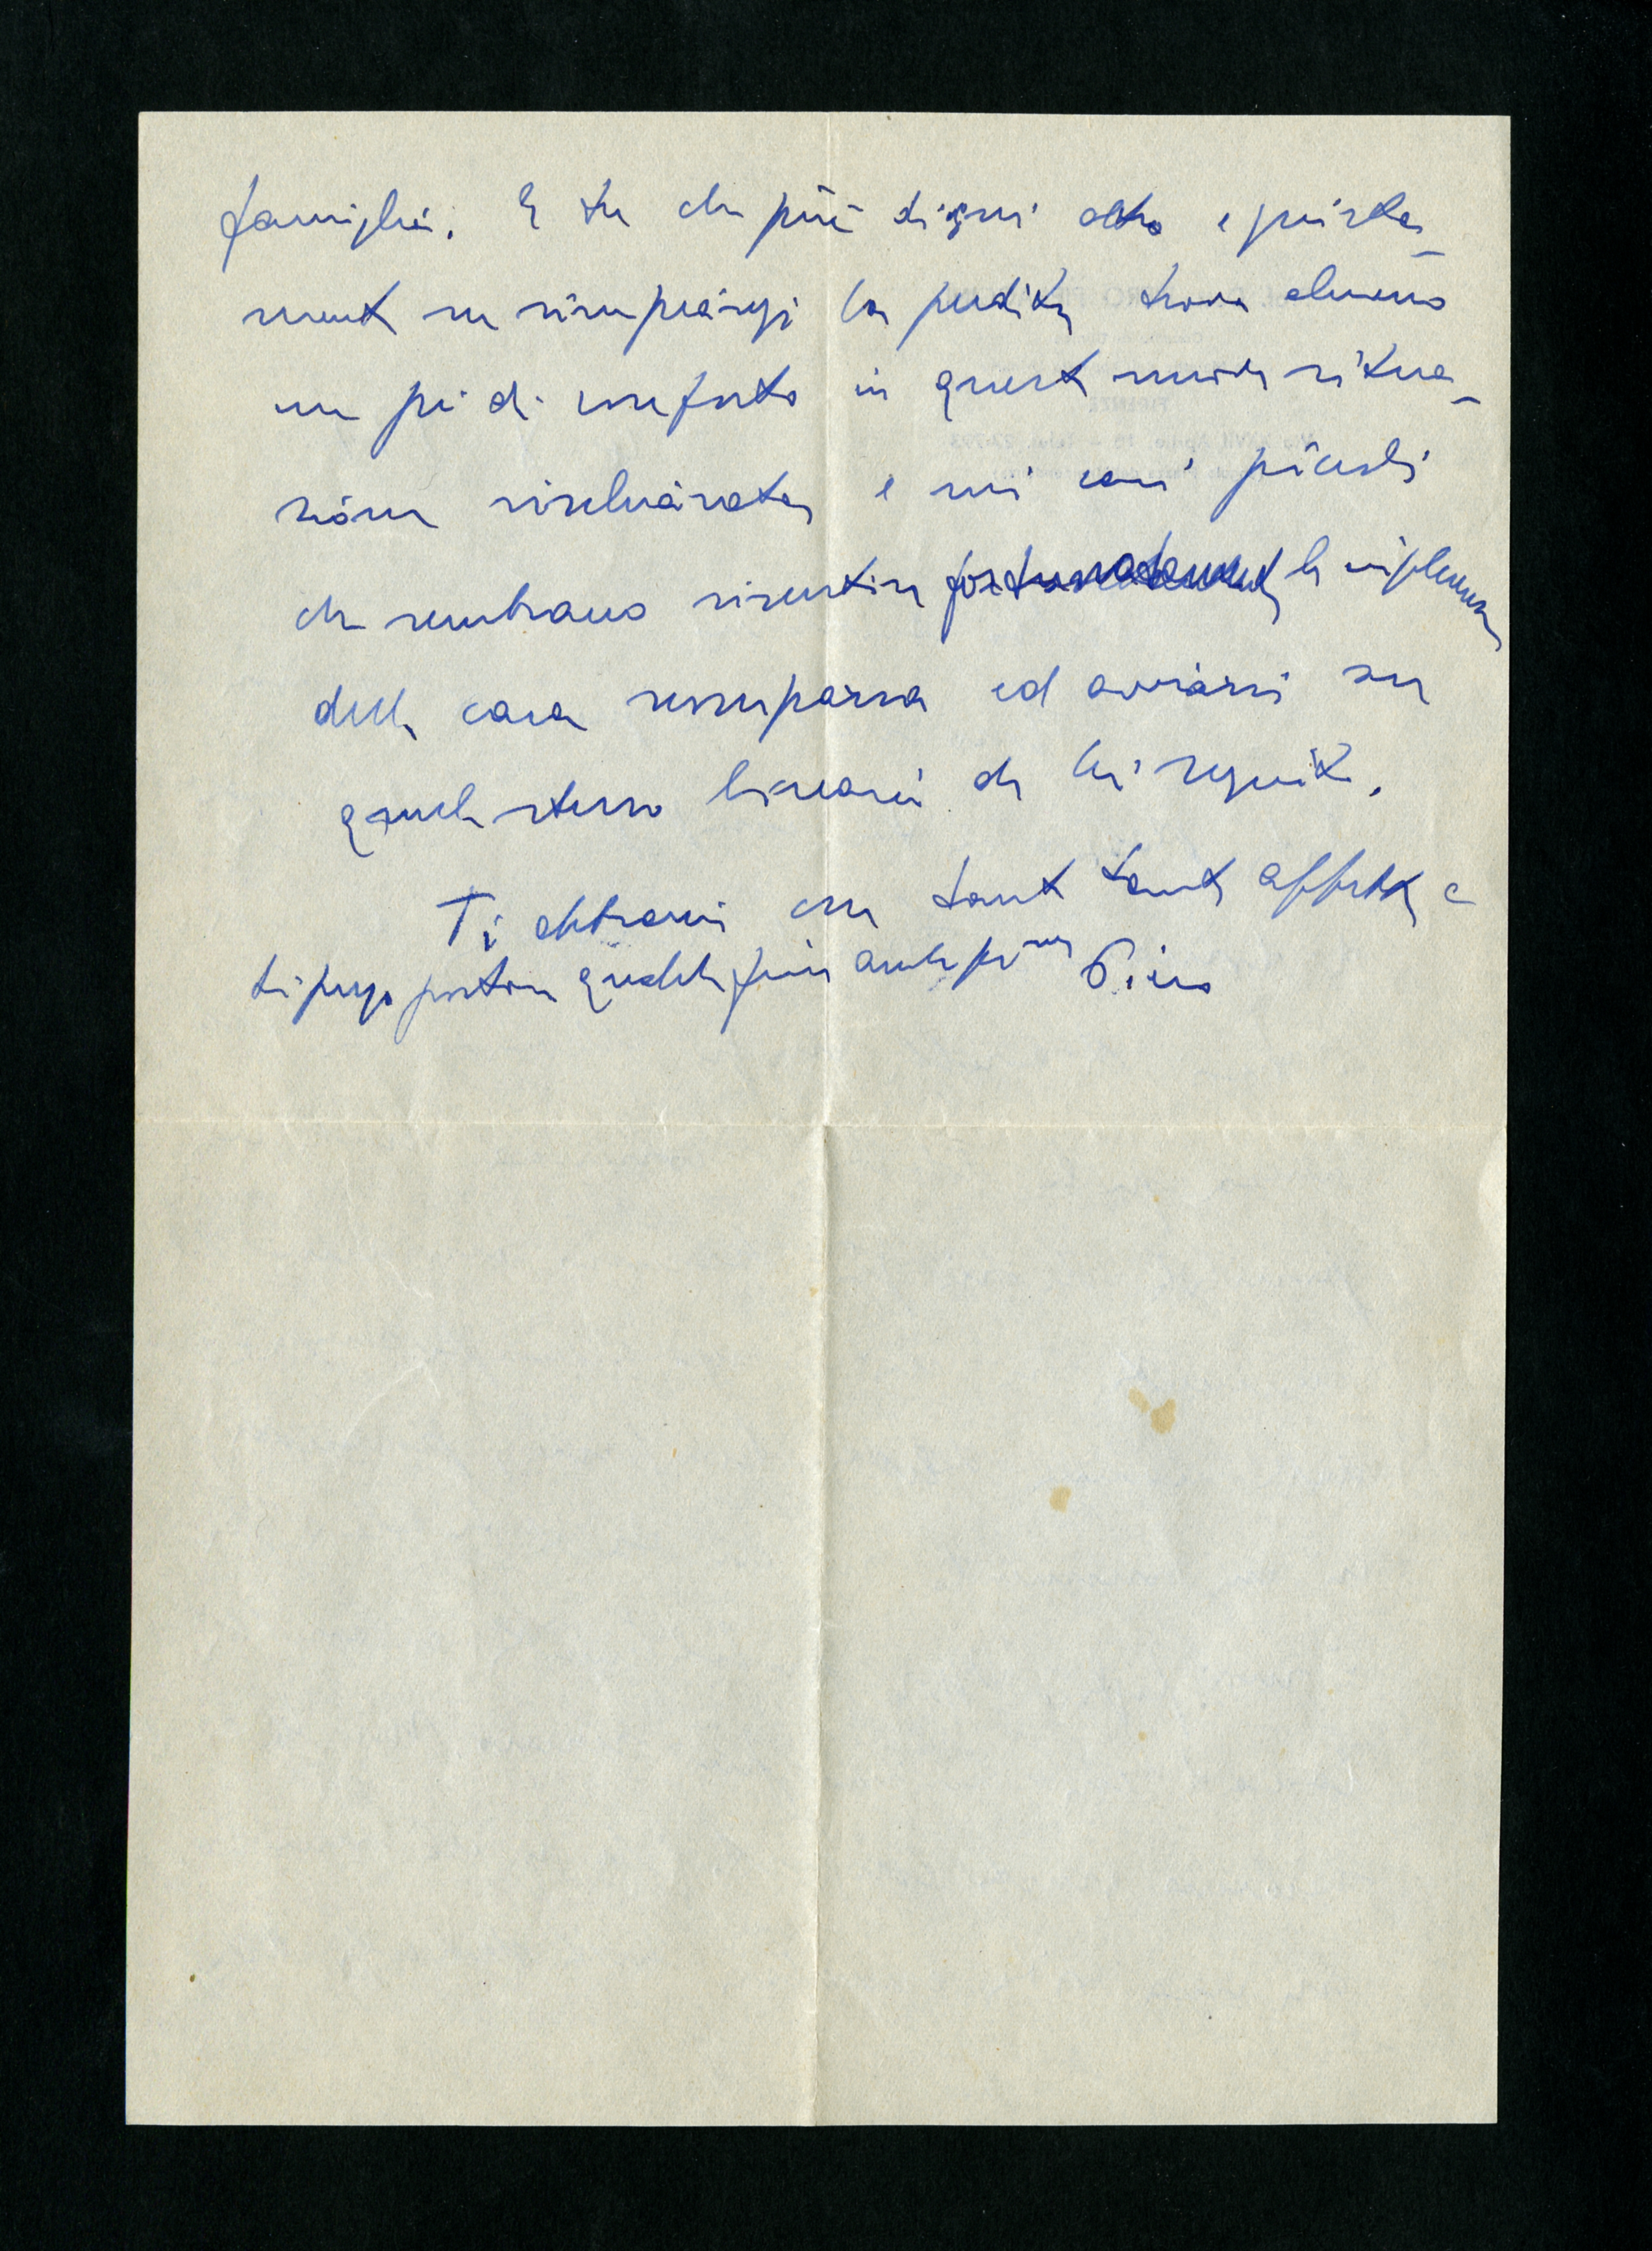 famiglia. E tu che più di ogni altro e giusta-
mente ne rimpiangi la perdita trova almeno
un po' di conforto in questa nuova situa-
zione rischiarata e nei cari piccoli
che sembrano risentire fortunatamente la influenza
della cara scomparsa ed avviarsi su
quello stesso binario da lei seguito.
Ti abbracci con tanto tanto affetto e
ti prego portare qualche fiore anche per me Piero